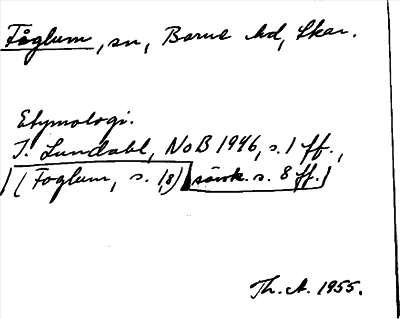 Fåglum, sn, Barne hd, Skar.
Etymologi.
I. Lundahl, NoB 1946, s. 1 ff.,
(Foglum, s. 1,8) särsk. s. 8 ff.)
Th. A. 1955.